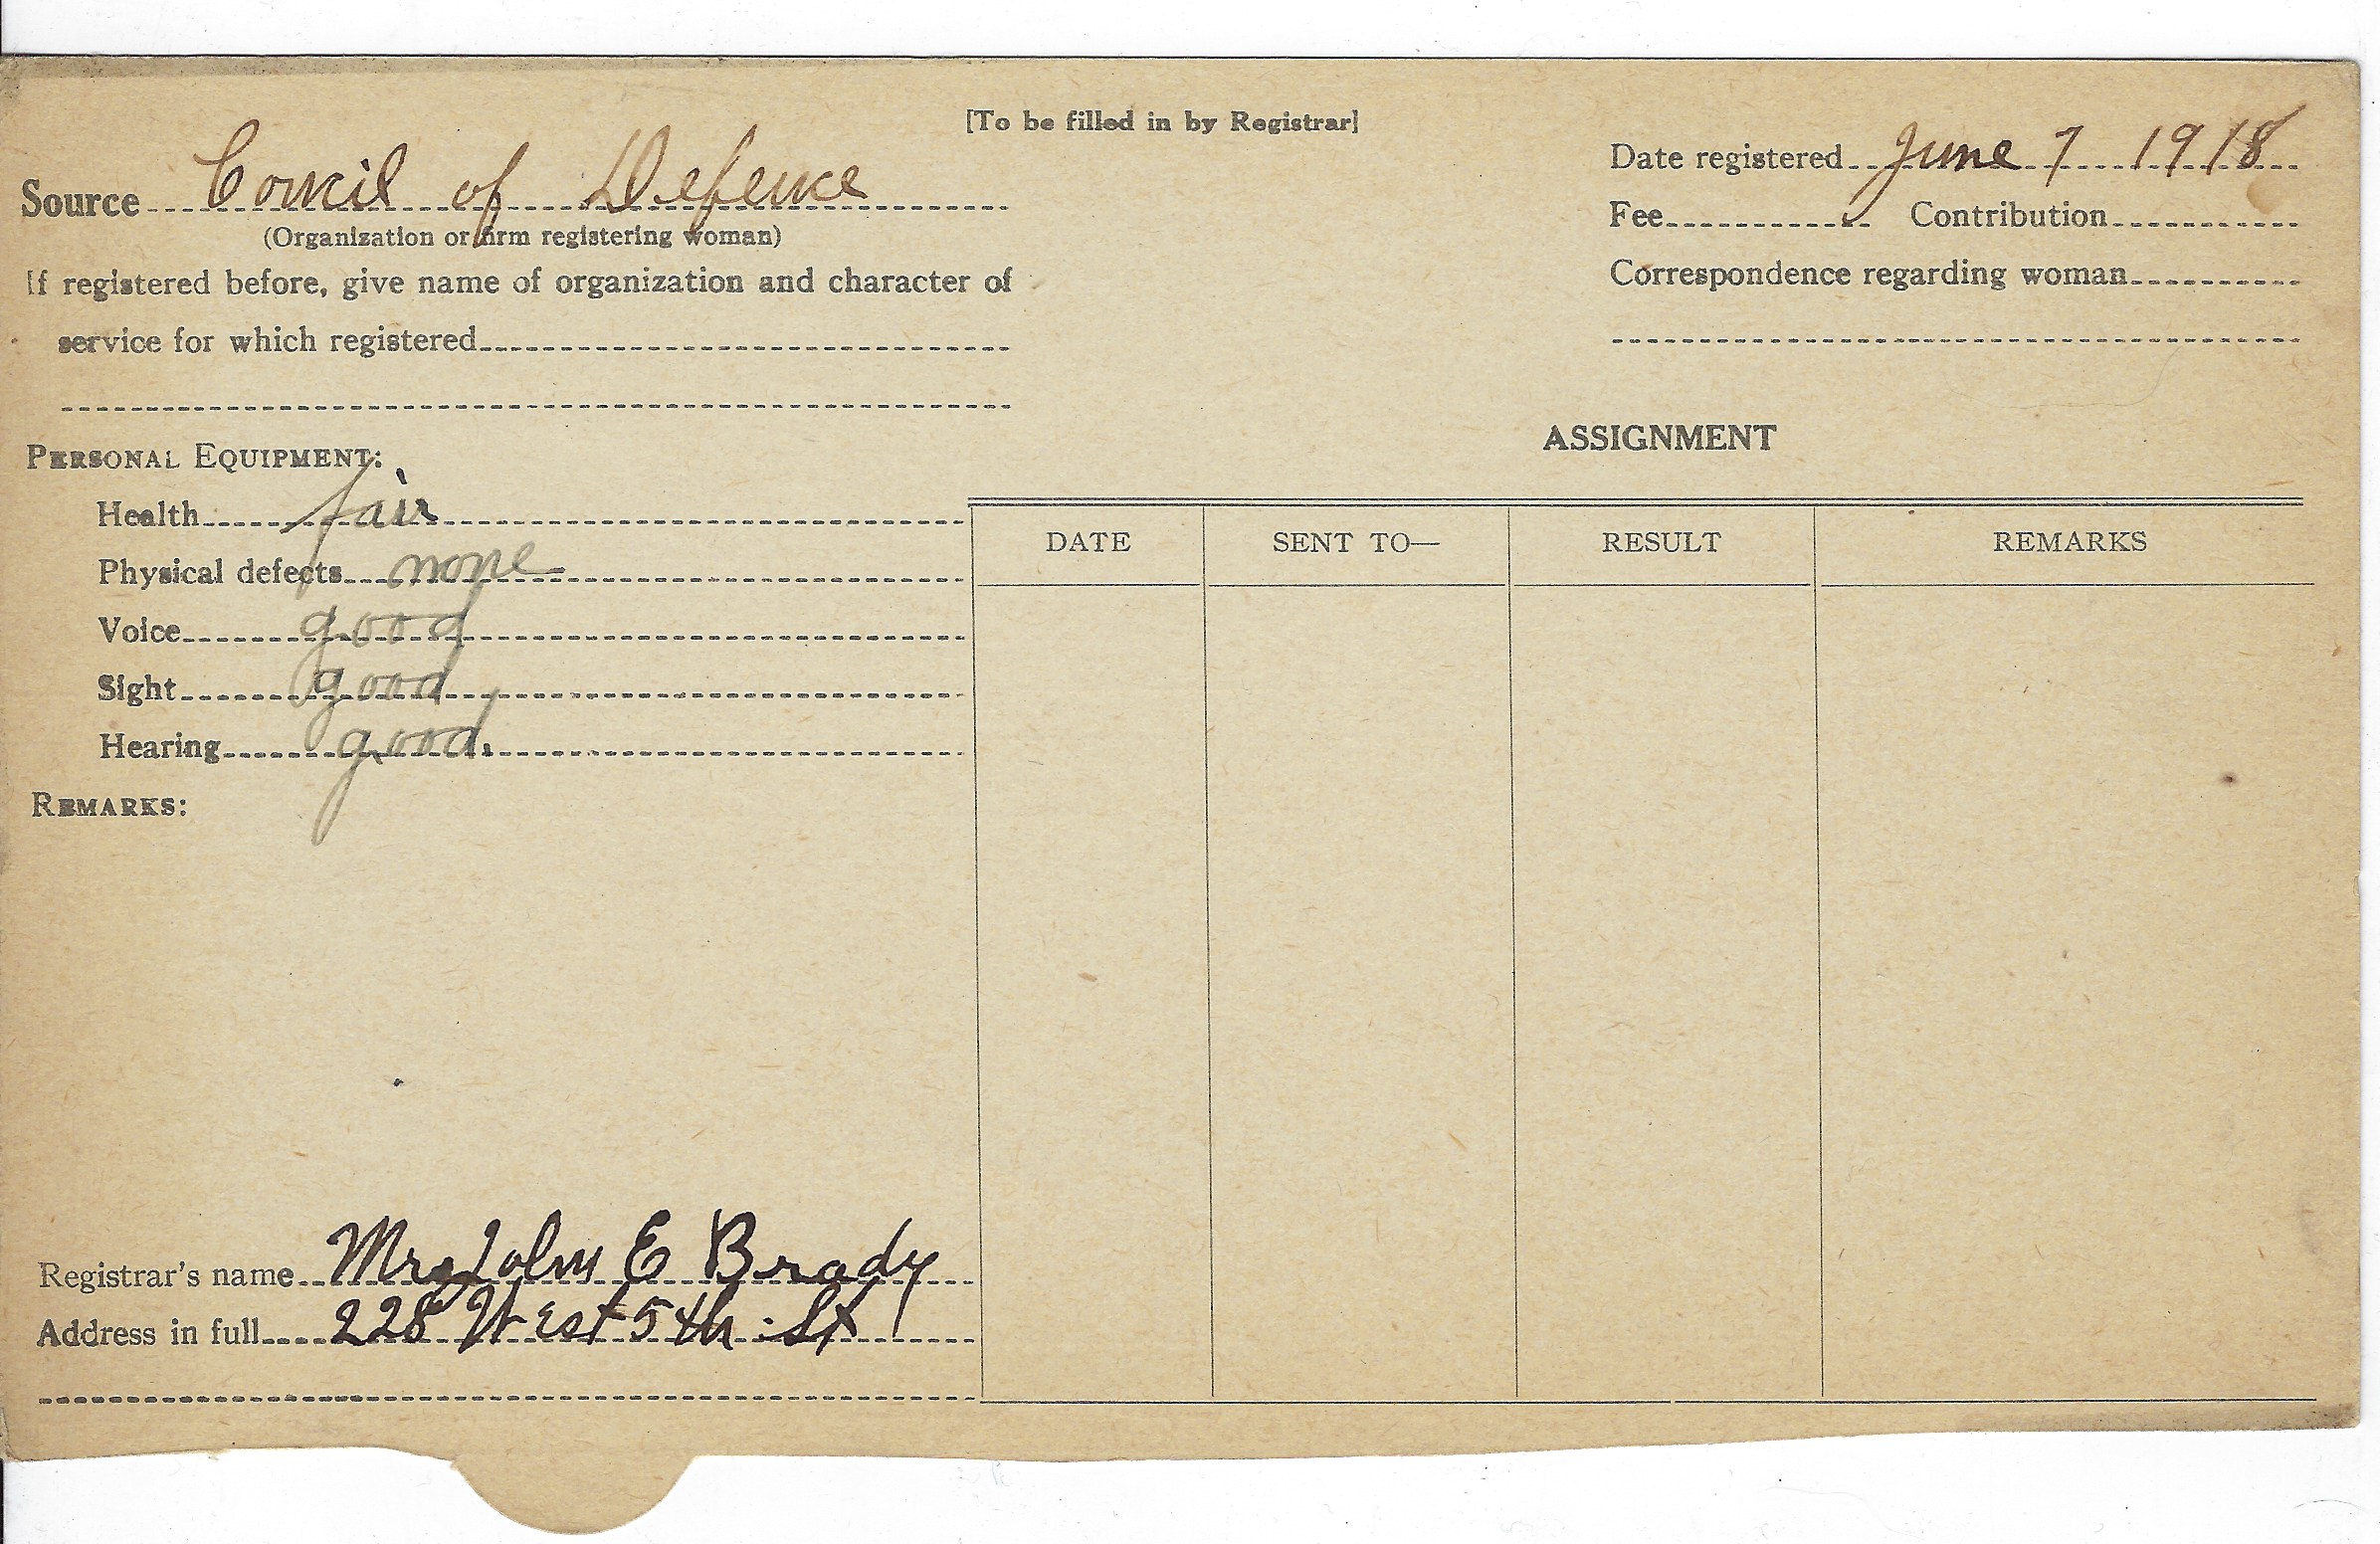 [To be filled in by Registrar]
Source Concil of Defence
(Organization or firm registering woman)
If registered before, give name of organization and character of
service for which registered
PERSONAL EQUIPMENT:
Health fair
Physical defects none
Voice good
Sight good
Hearing good.
REMARKS:
Registrar's name Mrs John E Brady
Address in full 228 West 5th St
Date registered June 7 1918
Fee Contribution
Correspondence regarding woman
ASSIGNMENT
DATE SENT TO— RESULT REMARKS